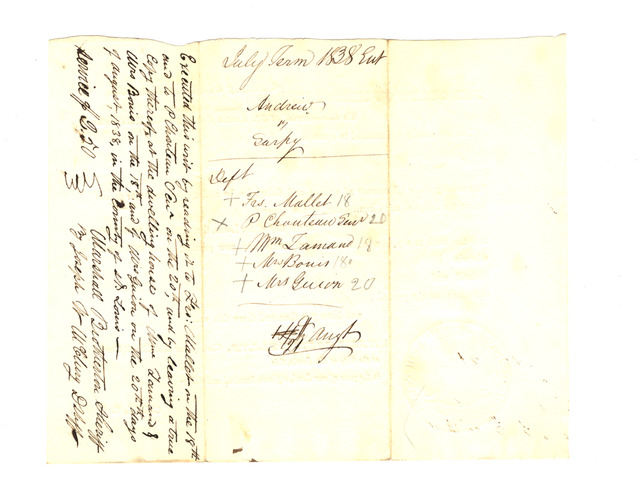 Executed this writ by reading it to Frs. Mallet on the 18th
and to P Chouteau Senr on the 20th, and by leaving a true
copy thereof at the dwelling houses of Wm Tamand &
Mrs Bouis on the 18th and of Mrs Guion on the 20th days
of August, 1838, in the County of St Louis —
Service $ 2.50
Marshall Brotherton Sheriff
By Joseph W McClurg D Shff
July Term 1838
Andrew
vs
Sarpy
Deft
+ Frs. Mallet 18
x P Chouteau Senr 20
+ Wm Tamand 18
+ Mrs Bouis 18
+ Mrs Guion 20
Augt